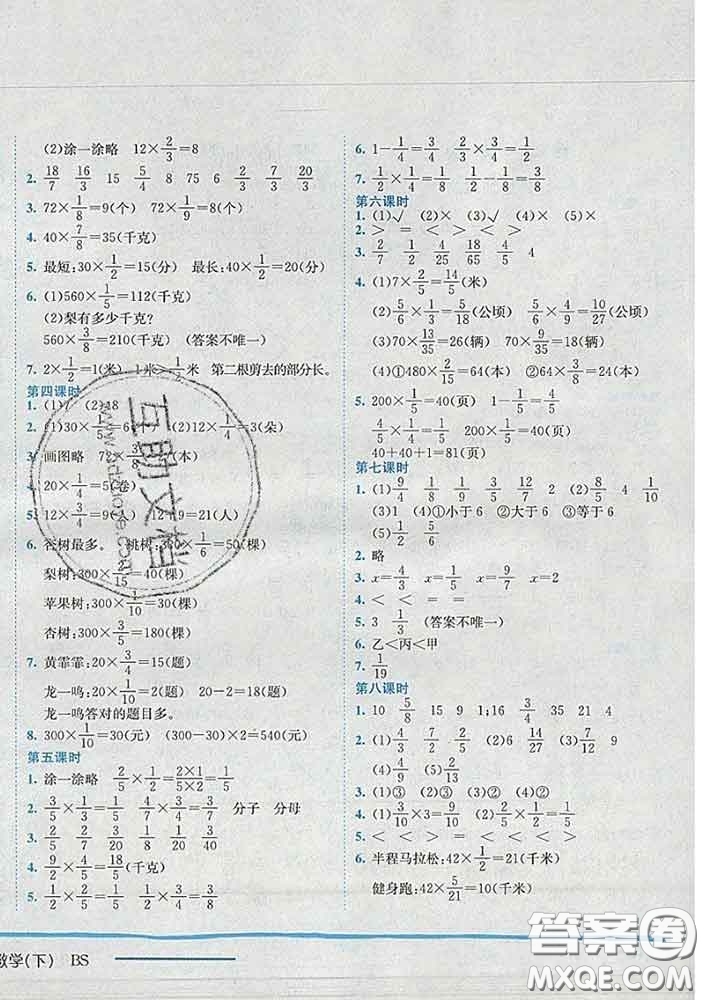 (2)涂一涂略 12×2/3=8
2. 18/7 16/3 15 5/4 8 75 6 2/3 3/2 7/3 20/3
3. 72×1/8=9(个) 72×1/9=8(个)
4. 40×7/8=35(千克)
5. 最短:30×1/2=15(分) 最长:40×1/2=20(分)
6. (1)560×1/5=112(千克)
(2)梨有多少千克?
560×3/8=210(千克) (答案不唯一)
7. 2×1/2=1(米) 1米>1/2米 第二根剪去的部分长。
第四课时
1. (1)7 (2)48
2. (1)30×1/5=6(个) (2)12×1/4=3(朵)
3. 画图略 72×3/8=(本)
4. 20×1/4=5(卷)
5. 12×3/4=9(人) 12+9=21(人)
6. 杏树最多。 桃树:300×1/6=50(棵)
梨树:300×2/15=40(棵)
苹果树:300×1/10=30(棵)
杏树:300×3/5=180(棵)
7. 黄霏霏:20×3/4=15(题)
龙一鸣:20×1/10=2(题) 20-2=18(题)
龙一鸣答对的题目多。
8. 300×1/10=30(元) (300-30)×2=540(元)
第五课时
1. 涂一涂略 2/5×1/2=2×1/5×2=1/5
2. 3/5×1/3=1/5 4/7×3/4=3/7 分子 分母
3. 2/5 1/4 3/20 1/15 2/7 3/20 4/15 1/3
4. 9/2×4/5=18/5(千克)
5. < = < > = <
6. 1-1/4=3/4 3/4×1/2=3/8
7. 1/2×1/4=1/8 1/2-1/8=3/8
第六课时
1. (1)√ (2)× (3)√ (4)× (5)×
2. > = < < > >
3. 2/7 1/4 4/25 18/65 4/5 4
4. (1)7×2/5=14/5(米)
(2)5/6×1/3=5/18(公顷) 5/6×4/9=10/27(公顷)
(3)70×13/35=26(辆) 70×18/35=36(辆)
(4)①480×2/15=64(本) ②120×8/15=64(本)
5. 200×1/5=40(页) 1-1/5=4/5
4/5×1/5=4/25 200×4/25=32(页)
40+40+1=81(页)
第七课时
1. (1)9/4 1/8 1/9 3/2 12 7/2 8 5/2 4 1/10
(3)1 (4)①小于6 ②大于6 ③等于6
(5)1/2 5/6
2. 略
3. x=4/3 x=1/5 x=9/7 x=2
4. < < = =
5. 3 1/3 (答案不唯一)
6. 乙<丙<甲
7. 1/19
第八课时
1. 10 5/8 15 9 1;16 3/4 35 21 4
2. (1)4/3 7/2 2/5 (2)6 14/27 (3)1/2
(4)4/9 1/5
3. (1)③ (2)③ (3)② (4)②
4. (1)3/10×3=9/10 (2)2/5×1/2=1/5
5. < < > < > <
6. 半程马拉松:42×1/2=21(千米)
健身跑:42×5/21=10(千米)
互助文档
数学(下) BS
答案卷
MXQE.COM